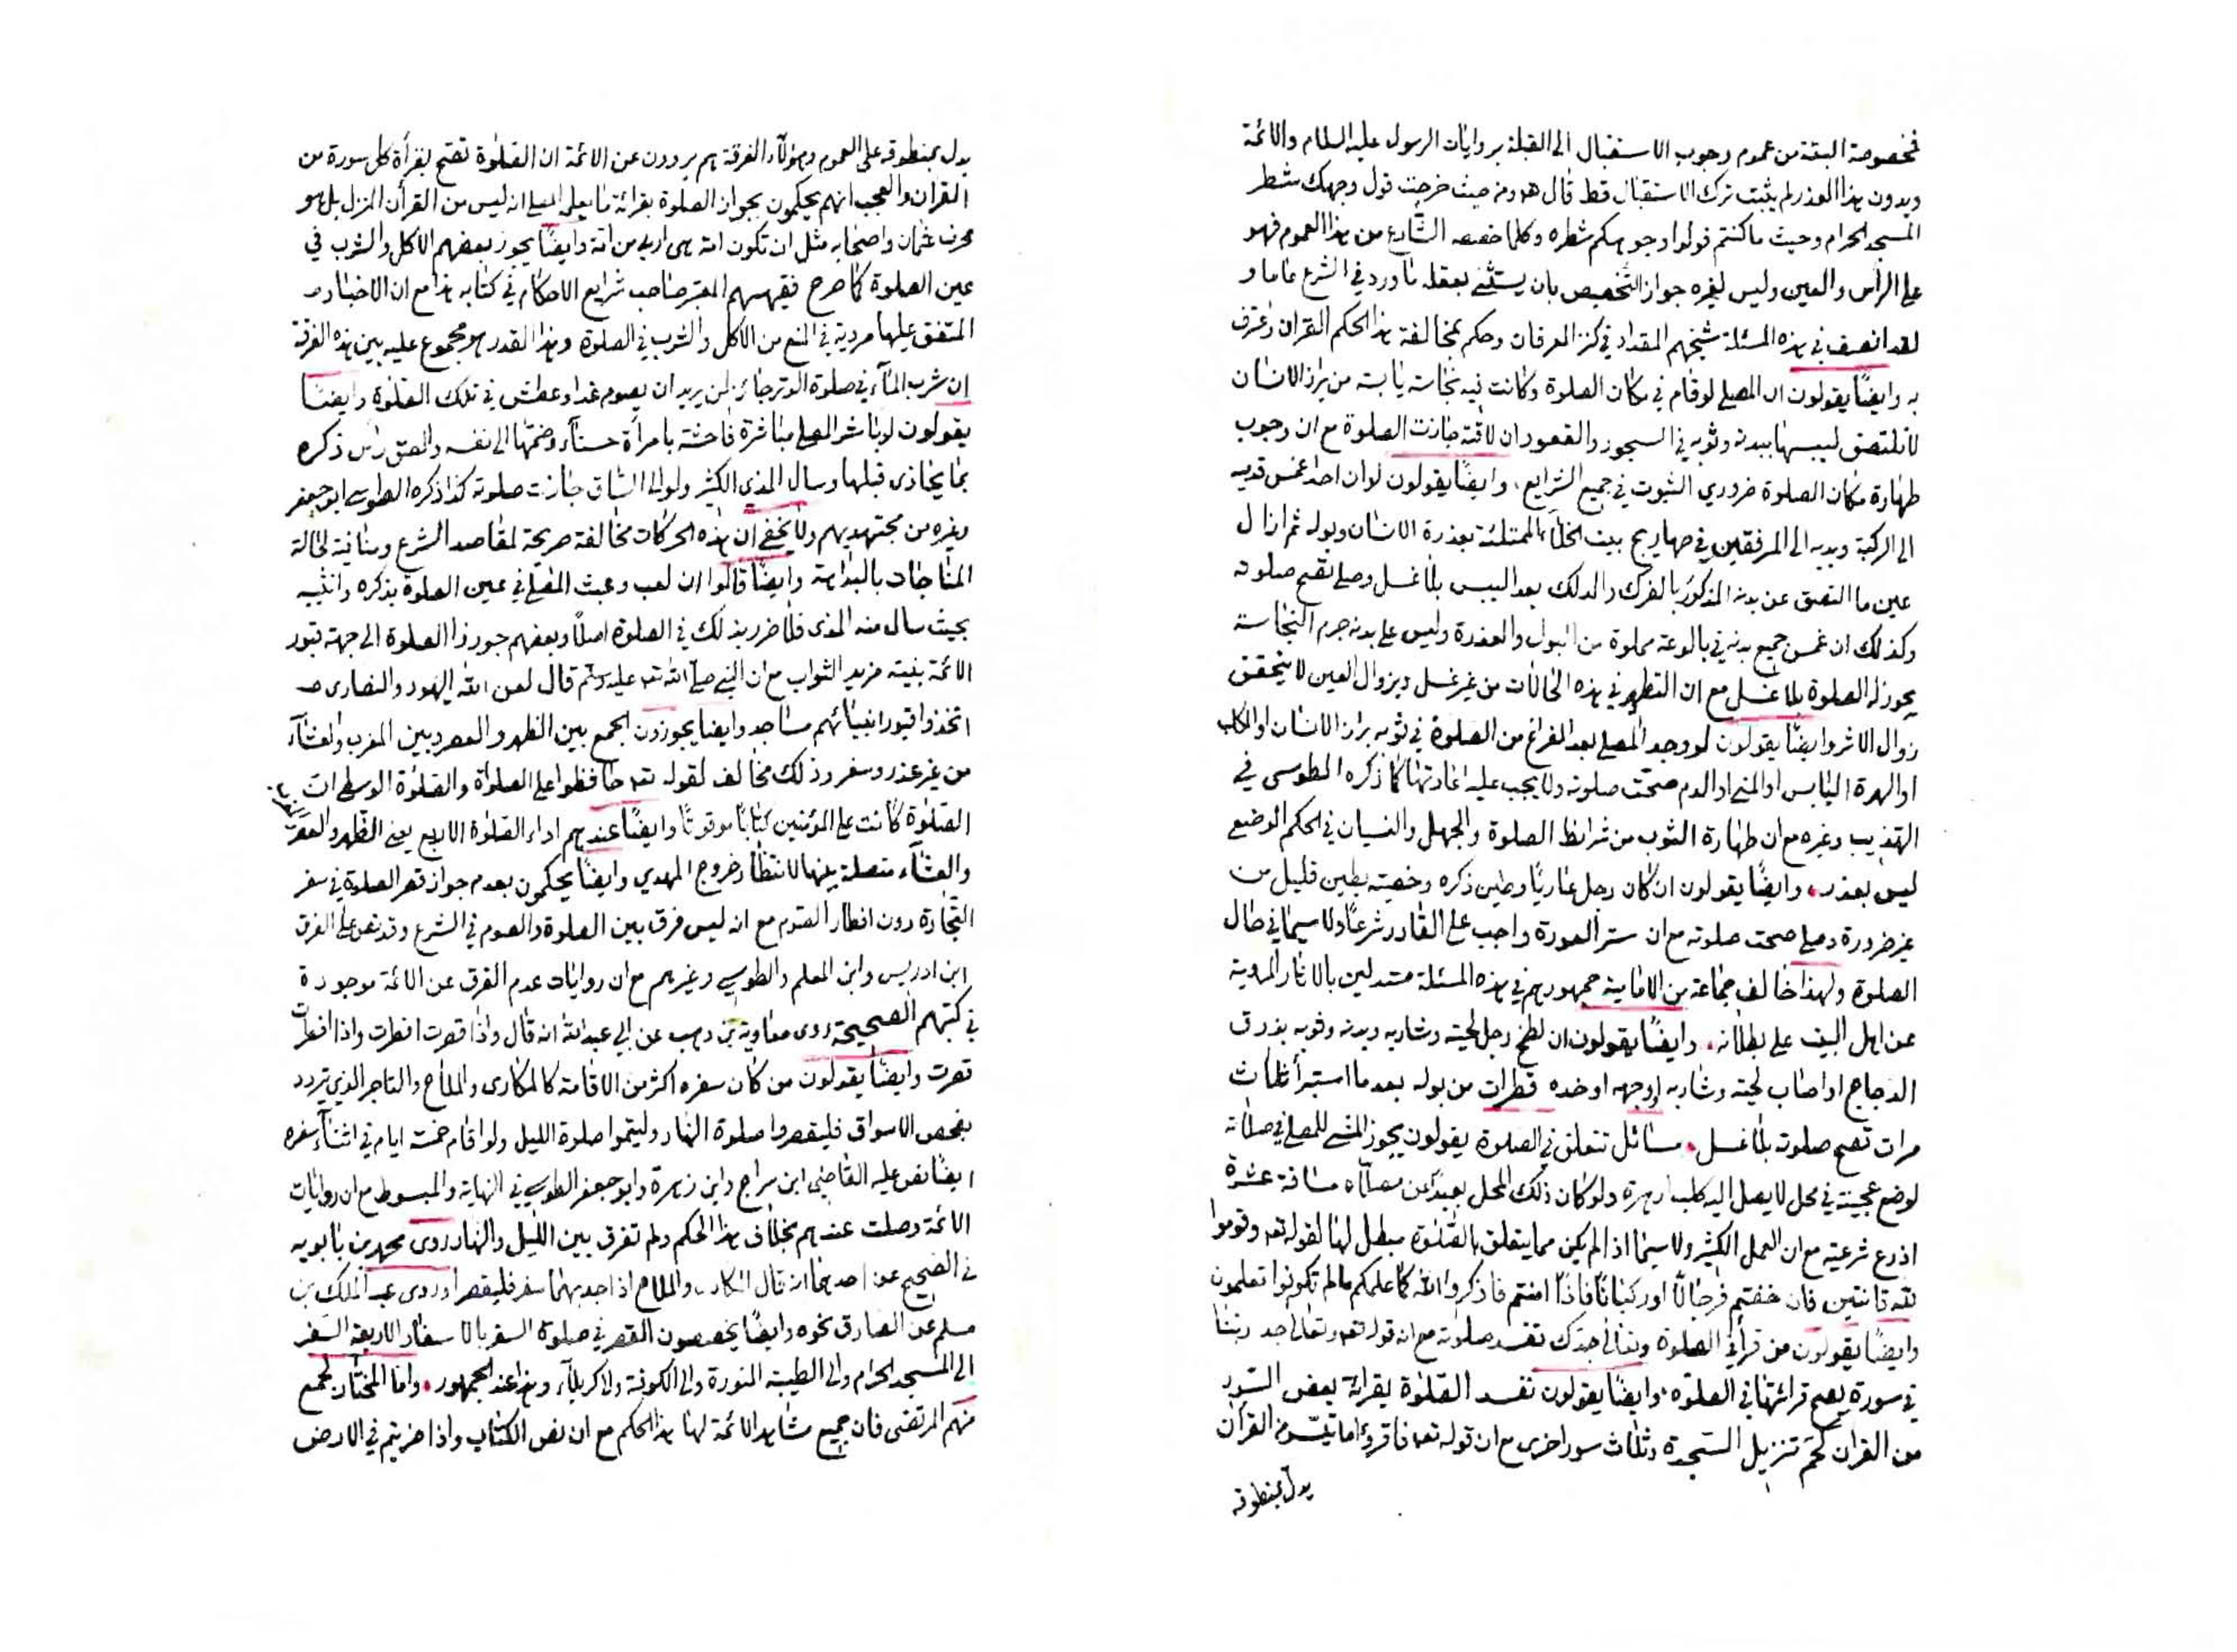 فخصوصة البتة من عموم وجوب الاستقبال الى القبلة بروايات الرسول عليه السلام والائمة
وبدون هذا العذر لم يثبت ترك الاستقبال قط قال هو ومن حيث خرجت فول وجهك شطر
المسجد الحرام وحيث ما كنتم فولوا وجوهكم شطره وكلما خصصه الشارع من هذا العموم فهو
على الرأس والعين وليس لغيره جواز التخصيص بان يستثنى بعقله ما ورد في الشرع عاما و
لقد انصف في هذه المسئلة شيخهم المقداد في كنز العرفان وحكم بمخالفة هذا الحكم القران واعترف
به وايضًا يقولون ان المصلى لو قام في مكان الصلوة وكانت فيه نجاسة يابسة من براز الانسان
لا تلتصق ليبسها ببدنه وثوبه في السجود والقعود ان لاقته جازت الصلوة مع ان وجوب
طهارة مكان الصلوة ضروري الثبوت في جميع الشرايع، وايضًا يقولون لو ان احدا غمس قدميه
الى الركبة ويديه الى المرفقين في صهاريج بيت الخلاء الممتلئة بعذرة الانسان وبوله ثم ازال
عين ما التصق عن بدنه المذكور بالفرك والدلك بعد اليبس بلا غسل وصلى تصح صلوته
وكذلك ان غمس جميع بدنه في بالوعة مملوة من البول والعذرة وليس على بدنه جرم النجاسة
يجوز له الصلوة بلا غسل مع ان التطهير في هذه الحالات من غير غسل ويزوال العين لا يتحقق
زوال الاثر وايضًا يقولون لو وجد المصلى بعد الفراغ من الصلوة في ثوبه براز الانسان او الكلب
او الهرة اليابس او المنى او الدم صحت صلوته ولا يجب عليه اعادتها كما ذكره الطوسى في
التهذيب وغيره مع ان طهارة الثوب من شرائط الصلوة والجهل والنسيان في الحكم الوضعي
ليس بعذر، وايضًا يقولون ان كان رجل عاريًا وطين ذكره وخصيته بطين قليل من
غير ضرورة وصلى صحت صلوته مع ان ستر العورة واجب على القادر شرعًا ولا سيما في حال
الصلوة ولهذا خالف جماعة من الامامية جمهورهم في هذه المسئلة مستدلين بالاثار المروية
عن اهل البيت على بطلانه، وايضًا يقولون ان لطخ رجل لحيته وشاربه وبدنه وثوبه بذرق
الدجاج او اصاب لحيته وشاربه او وجهه او خده قطرات من بوله بعد ما استبرأ ثلاث
مرات تصح صلوته بلا غسل، مسائل تتعلق في الصلوة يقولون يجوز المشى للمصلى في صلاته
لوضع عجينته في محل لا يصل اليه كلب او هرة ولو كان ذلك المحل بعيدًا عن مصلاه مسافة عشرة
اذرع شرعية مع ان العمل الكثير ولا سيما اذ الم يكن مما يتعلق بالصلوة مبطل لها لقوله تعه وقوموا
لله قانتين فان خفتم فرجالًا او ركبانًا فاذا امنتم فاذكروا الله كما علمكم ما لم تكونوا تعلمون
وايضًا يقولون من قرأ في الصلوة وتعالى جدك تفسد صلوته مع ان قوله تعه وتعالى جد ربنا
في سورة يصح قرائتها في الصلوة، وايضًا يقولون تفسد الصلوة بقرائة بعض السور
من القران كحم تنزيل السجدة وثلاث سور اخرى مع ان قوله تعه فاقرؤا ما تيسر من القرآن
يدل بمنطوقه
يدل بمنطوقه على العموم وهؤلآء الفرقة هم يروون عن الائمة ان الصلوة تصح بقرأة كل سورة من
القران والعجب انهم يحكمون بجواز الصلوة بقرائة ما يعلم المصلى انه ليس من القرأن المنزل بل هو
محرف عثمان واصحابه مثل ان تكون امة هى اربى من امة وايضًا يجوز بعضهم الاكل والشرب في
عين الصلوة كما صرح فقيههم المعتبر صاحب شرايع الاحكام في كتابه هذا مع ان الاخبار
المتفق عليها مروية في المنع من الاكل والشرب في الصلوة وهذا القدر هو مجموع عليه بين هذه الفرقة
ان شرب المآء في صلوة الوتر جائز لمن يريد ان يصوم غدا وعطش في تلك الصلوة وايضًا
يقولون لو باشر المصلى مباشرة فاحشة بامرأة حسنآء وضمها الى نفسه والصق رأس ذكره
بما يحاذى قبلها وسال المذي الكثير ولو الى الساق جازت صلوته كذا ذكره الطوسى ابو جعفر
وغيره من مجتهديهم ولا يخفى ان هذه الحركات مخالفة صريحة لمقاصد الشرع ومنافية لحالة
المناجات بالبداهة وايضًا قالوا ان لعب وعبث المصلى في عين الصلوة بذكره وانثييه
بحيث سال منه المذى فلا ضرر بذلك في الصلوة اصلًا وبعضهم جوزوا الصلوة الى جهة قبور
الائمة بنية مزيد الثواب مع ان النبى صلى الله تعه عليه وسلم قال لعن الله اليهود والنصارى
اتخذوا قبور انبيائهم مساجد وايضا يجوزون الجمع بين الظهر والعصر وبين المغرب والعشآء
من غير عذر وسفر وذلك مخالف لقوله تعه حافظوا على الصلواة والصلوة الوسطى ان
الصلوة كانت على المؤمنين كتابًا موقوتًا وايضًا عندهم اداء الصلوة الاربع يعنى الظهر والعصر
والمغرب
والعشآء متصلة بينها لانتظار خروج المهدي وايضًا يحكمون بعدم جواز قصر الصلوة في سفر
التجارة دون افطار الصوم مع انه ليس فرق بين الصلوة والصوم في الشرع وقد نص على الفرق
ابن ادريس وابن المعلم والطوسي وغيرهم مع ان روايات عدم الفرق عن الائمة موجودة
في كتبهم الصحيحة روى معاوية بن وهب عن ابى عبدالله انه قال واذا قصرت افطرت واذا افطرت
قصرت وايضًا يقولون من كان سفره اكثر من الاقامة كالمكارى والملاح والتاجر الذي تردد
بفحص الاسواق فليقصروا صلوة النهار وليتموا صلوة الليل ولو اقام خمسة ايام في اثنآء سفره
ايضًا نص عليه القاضى ابن سراج وابن زهرة وابو جعفر الطوسى في النهاية والمبسوط مع ان روايات
الائمة وصلت عندهم بخلاف هذا الحكم ولم تفرق بين الليل والنهار روى محمد بن بابويه
في الصحيح عن احدهما انه قال المكارى والملاح اذا جد بهما سفر فليقصرا وروى عبد الملك بن
مسلم عن الصادق نحوه وايضًا يخصصون القصر في صلوة السفر بالاسفار الاربعة السفر
الى المسجد الحرام والى الطيبة المنورة والى الكوفة والى كربلآء وهذا عند الجمهور، واما المختار لجمع
منهم المرتضى فان جميع مشاهد الائمة لها هذا الحكم مع ان نص الكتاب واذا ضربتم في الارض